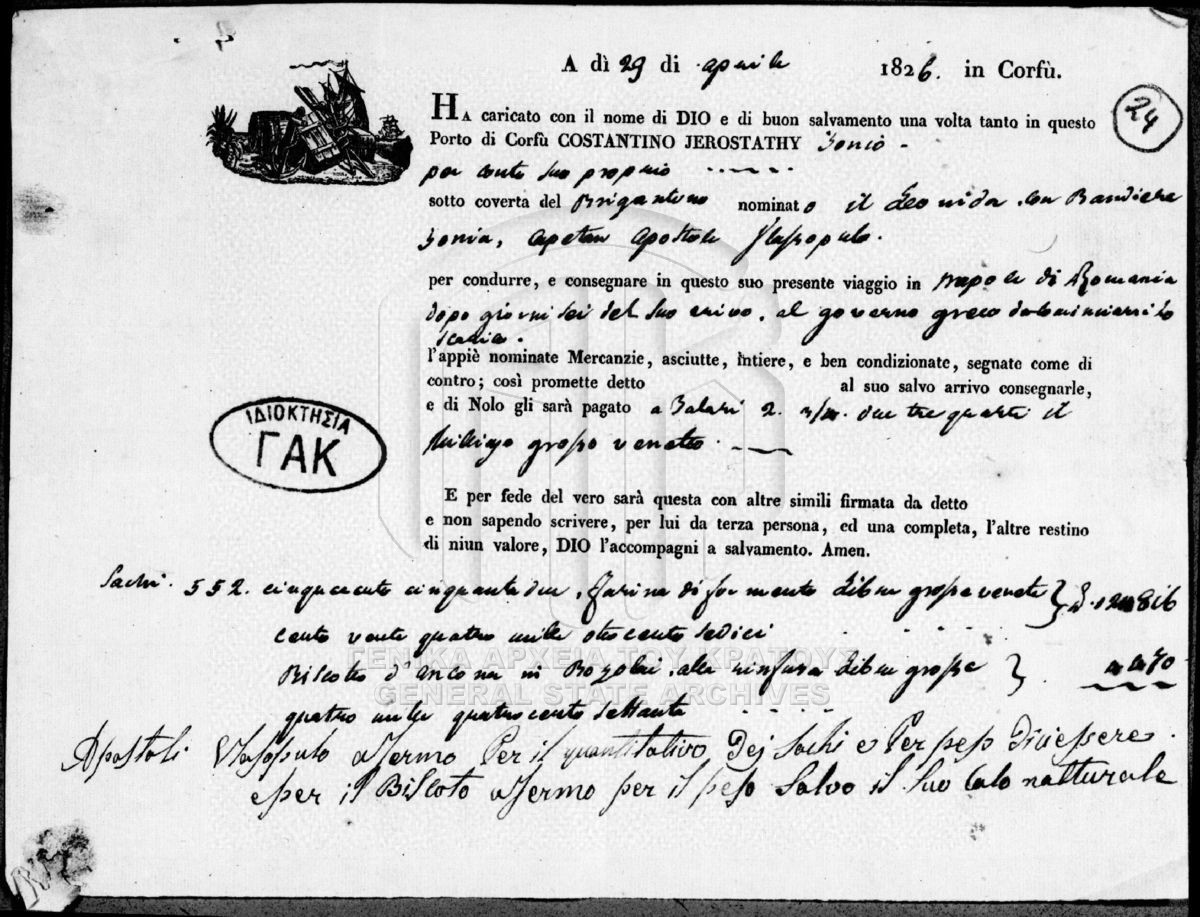 A dì 29 di aprile 1826. in Corfù.
24
HA caricato con il nome di DIO e di buon salvamento una volta tanto in questo
Porto di Corfù COSTANTINO JEROSTATHY Ionio
per conto suo proprio
sotto coverta del Brigantino nominato il Leonida con Bandiera
Ionia, Capetan Apostoli Vlassopulo.
per condurre, e consegnare in questo suo presente viaggio in Napoli di Romania
dopo giorni sei del suo arivo, al governo greco
l'appiè nominate Mercanzie, asciutte, intiere, e ben condizionate, segnate come di
contro; così promette detto al suo salvo arrivo consegnarle,
e di Nolo gli sarà pagato a Talari 2. 3/4. due tre quarti il
Migliajo grosso veneto.
ΙΔΙΟΚΤΗΣΙΑ
ΓΑΚ
E per fede del vero sarà questa con altre simili firmata da detto
e non sapendo scrivere, per lui da terza persona, ed una completa, l'altre restino
di niun valore, DIO l'accompagni a salvamento. Amen.
Sachi. 552. cinquecento cinquanta due, farina di formento libre grosse venete
cento vente quatro mille otocento sedici
ΓΕΝΙΚΑ ΑΡΧΕΙΑ ΤΟΥ ΚΡΑΤΟΥΣ
Biscotto d'Ancona in alla rinfusa libre grosse 4470
GENERAL STATE ARCHIVES
quatro mille quatrocento settanta
Apostoli Vlasopulo afermo Per il quantitativo Dej Sachi e Per peso
e per il Biscoto afermo per il peso Salvo il Suo Calo natturale